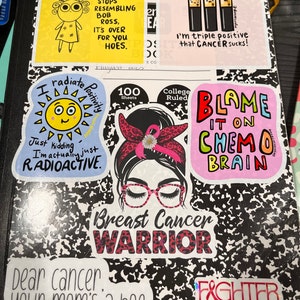 STOPS
RESEMBLING
BOB
ROSS,
IT'S OVER
FOR YOU
HOES.
I'm TRIPLE POSITIVE
THAT CANCER SUCKS!
I radiate Positivity
Just kidding
I'm actually just
RADIOACTIVE.
100
Sheets
College
Ruled
BLAME
IT ON
CHEMO
BRAIN
Breast Cancer
WARRIOR
Dear Cancer,
your mom's a hoe
FIGHTER